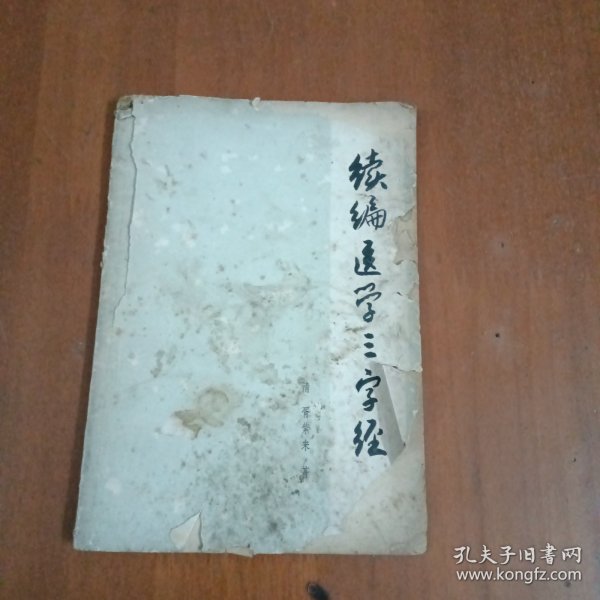 续编医学三字经
清 胥紫来 著
孔夫子旧书网
www.kongfz.com